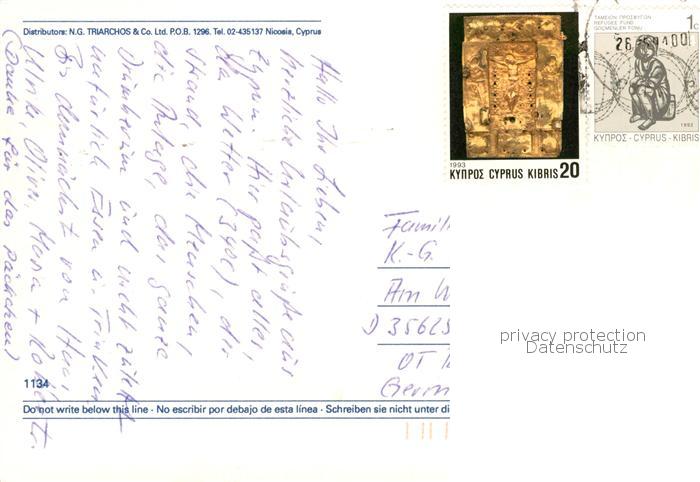 Distributors: N.G. TRIARCHOS & Co. Ltd. P.O.B. 1296. Tel. 02-435137 Nicosia, Cyprus
Hallo Ihr Lieben,
herzliche Urlaubsgrüße aus
Zypern. Hier paßt alles,
das Wetter (34°C), der
Strand, die Menschen,
die Anlage, das Ganze
Drumherum und nicht zuletzt
natürlich Essen u. Trinken
Bis demnächst von Haus
Ulrike, Oliver, Maria + Robert.
(Danke für das Päckchen)
1134
Do not write below this line · No escribir por debajo de esta línea · Schreiben sie nicht unter di
1993
ΚΥΠΡΟΣ CYPRUS KIBRIS 20
ΤΑΜΕΙΟΝ ΠΡΟΣΦΥΓΩΝ
REFUGEE FUND
GÖÇMENLER FONU
1c
1992
ΚΥΠΡΟΣ - CYPRUS - KIBRIS
Famili
K.-G.
Am W
D 35625
OT
Germ
privacy protection
Datenschutz